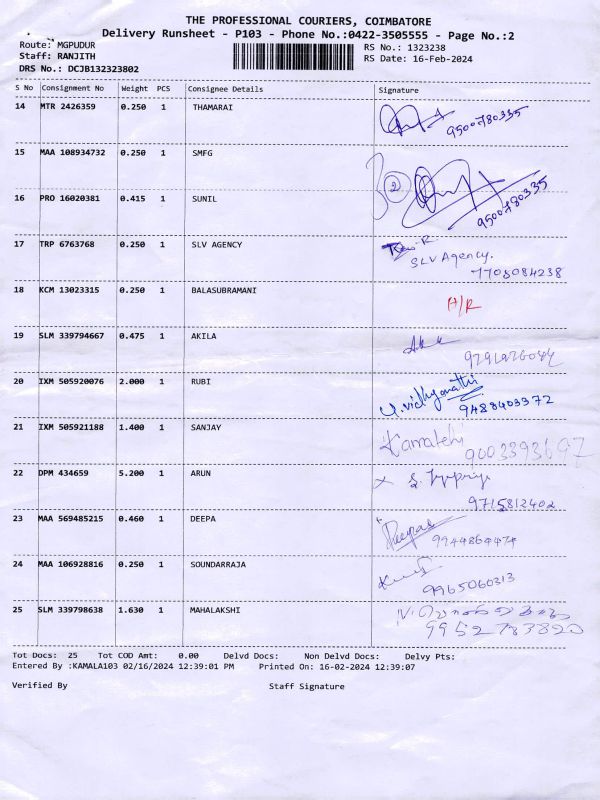 THE PROFESSIONAL COURIERS, COIMBATORE
Delivery Runsheet - P103 - Phone No.:0422-3505555 - Page No.:2
Route: MGPUDUR
RS No.: 1323238
Staff: RANJITH
RS Date: 16-Feb-2024
DRS No.: DCJB132323802
S No Consignment No Weight PCS Consignee Details Signature
14 MTR 2426359 0.250 1 THAMARAI
9500780335
15 MAA 108934732 0.250 1 SMFG
2
16 PRO 16020381 0.415 1 SUNIL
9500780335
17 TRP 6763768 0.250 1 SLV AGENCY
SLV Agency.
7708084238
18 KCM 13023315 0.250 1 BALASUBRAMANI
H/R
19 SLM 339794667 0.475 1 AKILA
20 IXM 505920076 2.000 1 RUBI
9488403372
21 IXM 505921188 1.400 1 SANJAY
9003393697
22 DPM 434659 5.200 1 ARUN
9715812402
23 MAA 569485215 0.460 1 DEEPA
9944864474
24 MAA 106928816 0.250 1 SOUNDARRAJA
9965060313
25 SLM 339798638 1.630 1 MAHALAKSHI
9952783820
Tot Docs: 25 Tot COD Amt: 0.00 Delvd Docs: Non Delvd Docs: Delvy Pts:
Entered By :KAMALA103 02/16/2024 12:39:01 PM Printed On: 16-02-2024 12:39:07
Verified By Staff Signature